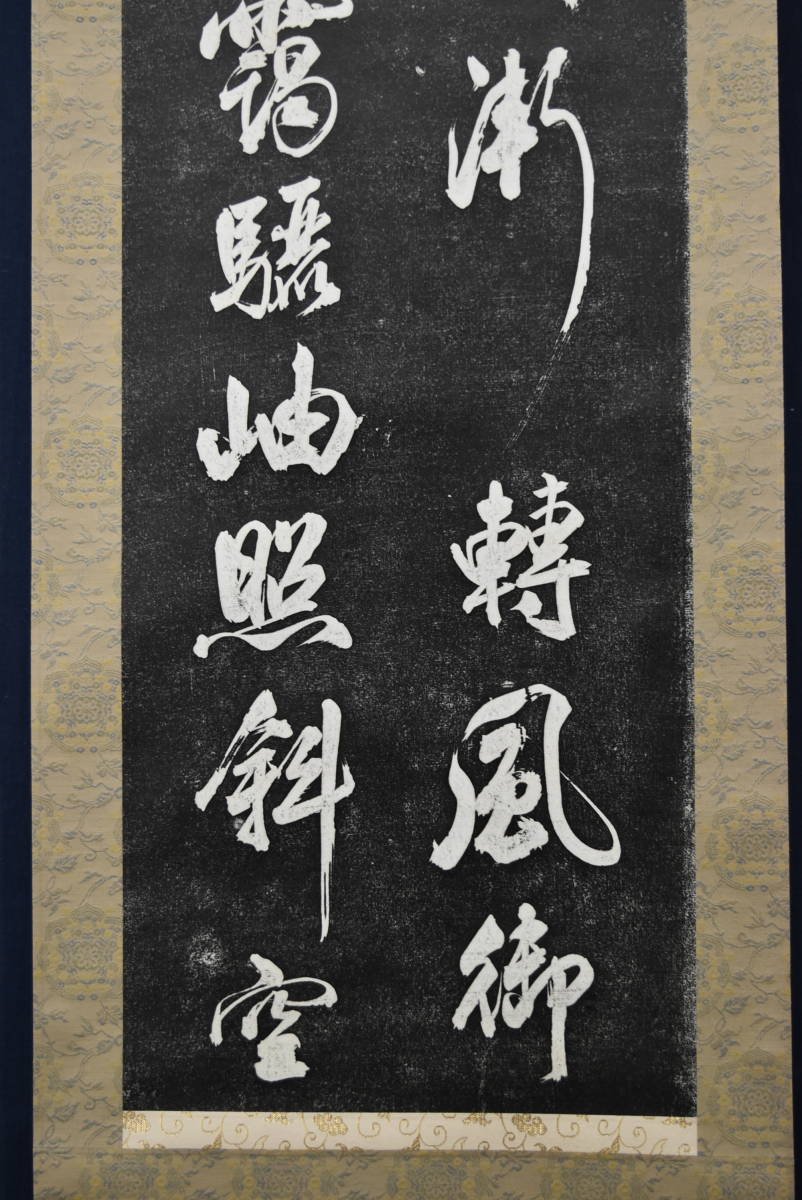 漸轉風御
靄驪岫照斜空